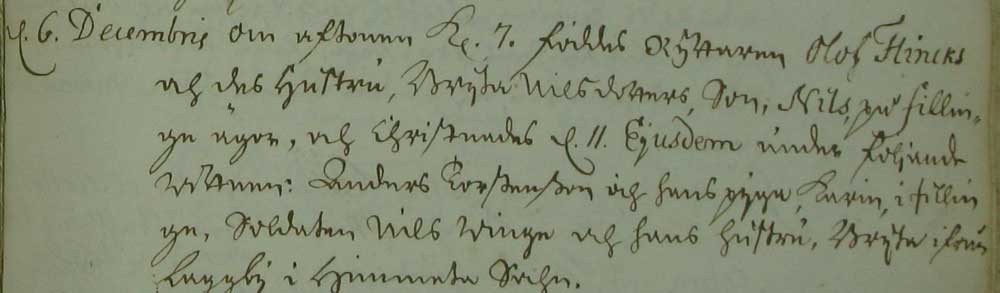 d. 6. Decembris om aftonen Kl. 7. föddes Ryttaren Olof Flincks
och des Hustru, Bryta Nilsdotters, Son, Nils, på fillin-
ge ägor, och Christnades d. 11. Ejusdem under följande
vittnen: Anders Torstensson och hans pyga, Karin, i fillin
ge, Soldaten Nils Winge och hans hustru, Bryta ifrån
Laggby i Himmeta Sochn.